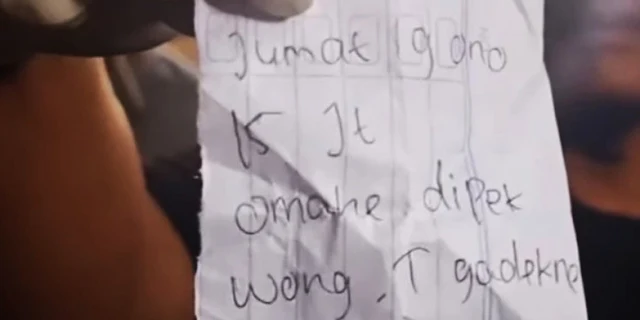 Jumat lgono
15 Jt
omahe dipek
wong . T gadekne